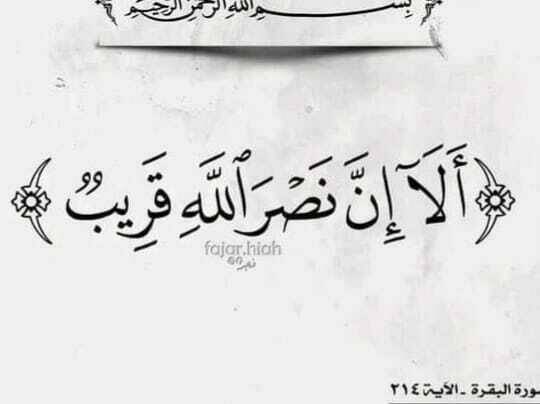 بِسْمِ اللَّهِ الرَّحْمَنِ الرَّحِيمِ
أَلَآ إِنَّ نَصْرَ ٱللَّهِ قَرِيبٌ
fajar.hiah
فجر
سورة البقرة - الآية ٢١٤